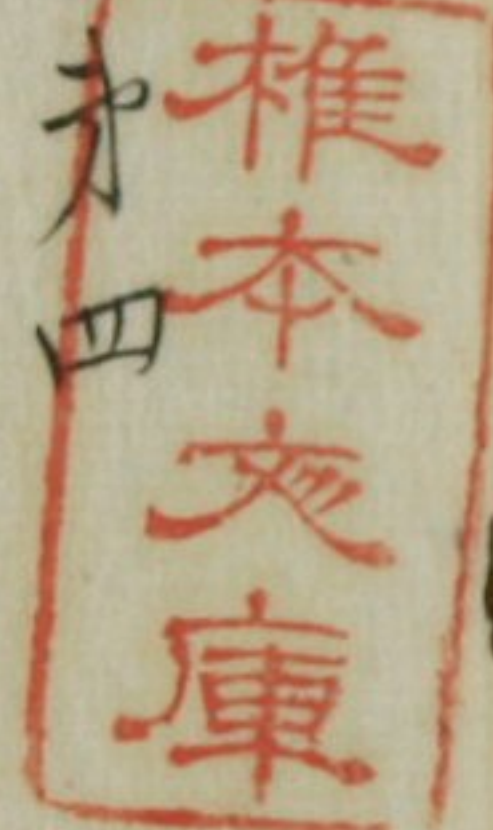 椎本文庫
㐧四